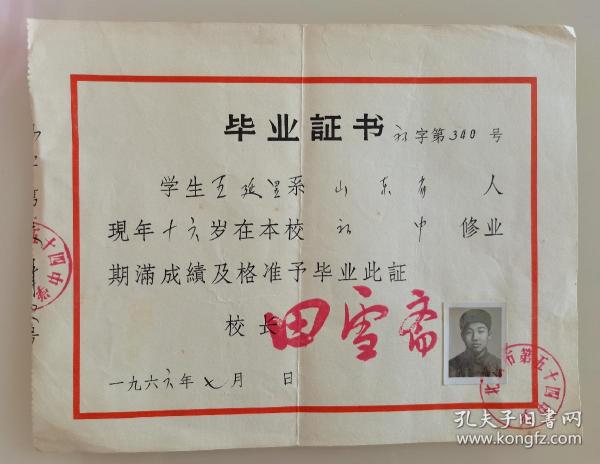 毕业証书
初字第340号
学生王延里系山东省人
現年十六岁在本校初中修业
期滿成績及格准予毕业此証
校长
田雪斋
一九六六年七月 日
市第五十四中
十四中学
孔夫子旧书网
www.kongfz.com